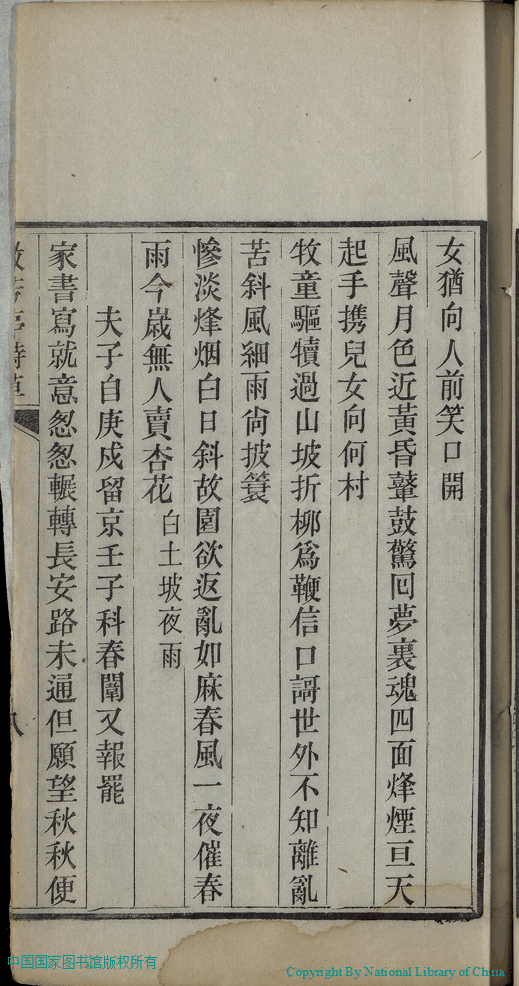 女猶向人前笑口開
風聲月色近黃昏鼙鼓驚回夢裏魂四面烽煙亘天
起手携兒女向何村
牧童驅犢過山坡折柳爲鞭信口謌世外不知離亂
苦斜風細雨尙披簑
慘淡烽烟白日斜故園欲返亂如麻春風一夜催春
雨今歲無人賣杏花白土坡夜雨
夫子自庚戍留京壬子科春闈又報罷
家書寫就意怱怱輾轉長安路未通但願望秋秋便
亭詩草
八
中国国家图书馆版权所有
Copyright By National Library of China